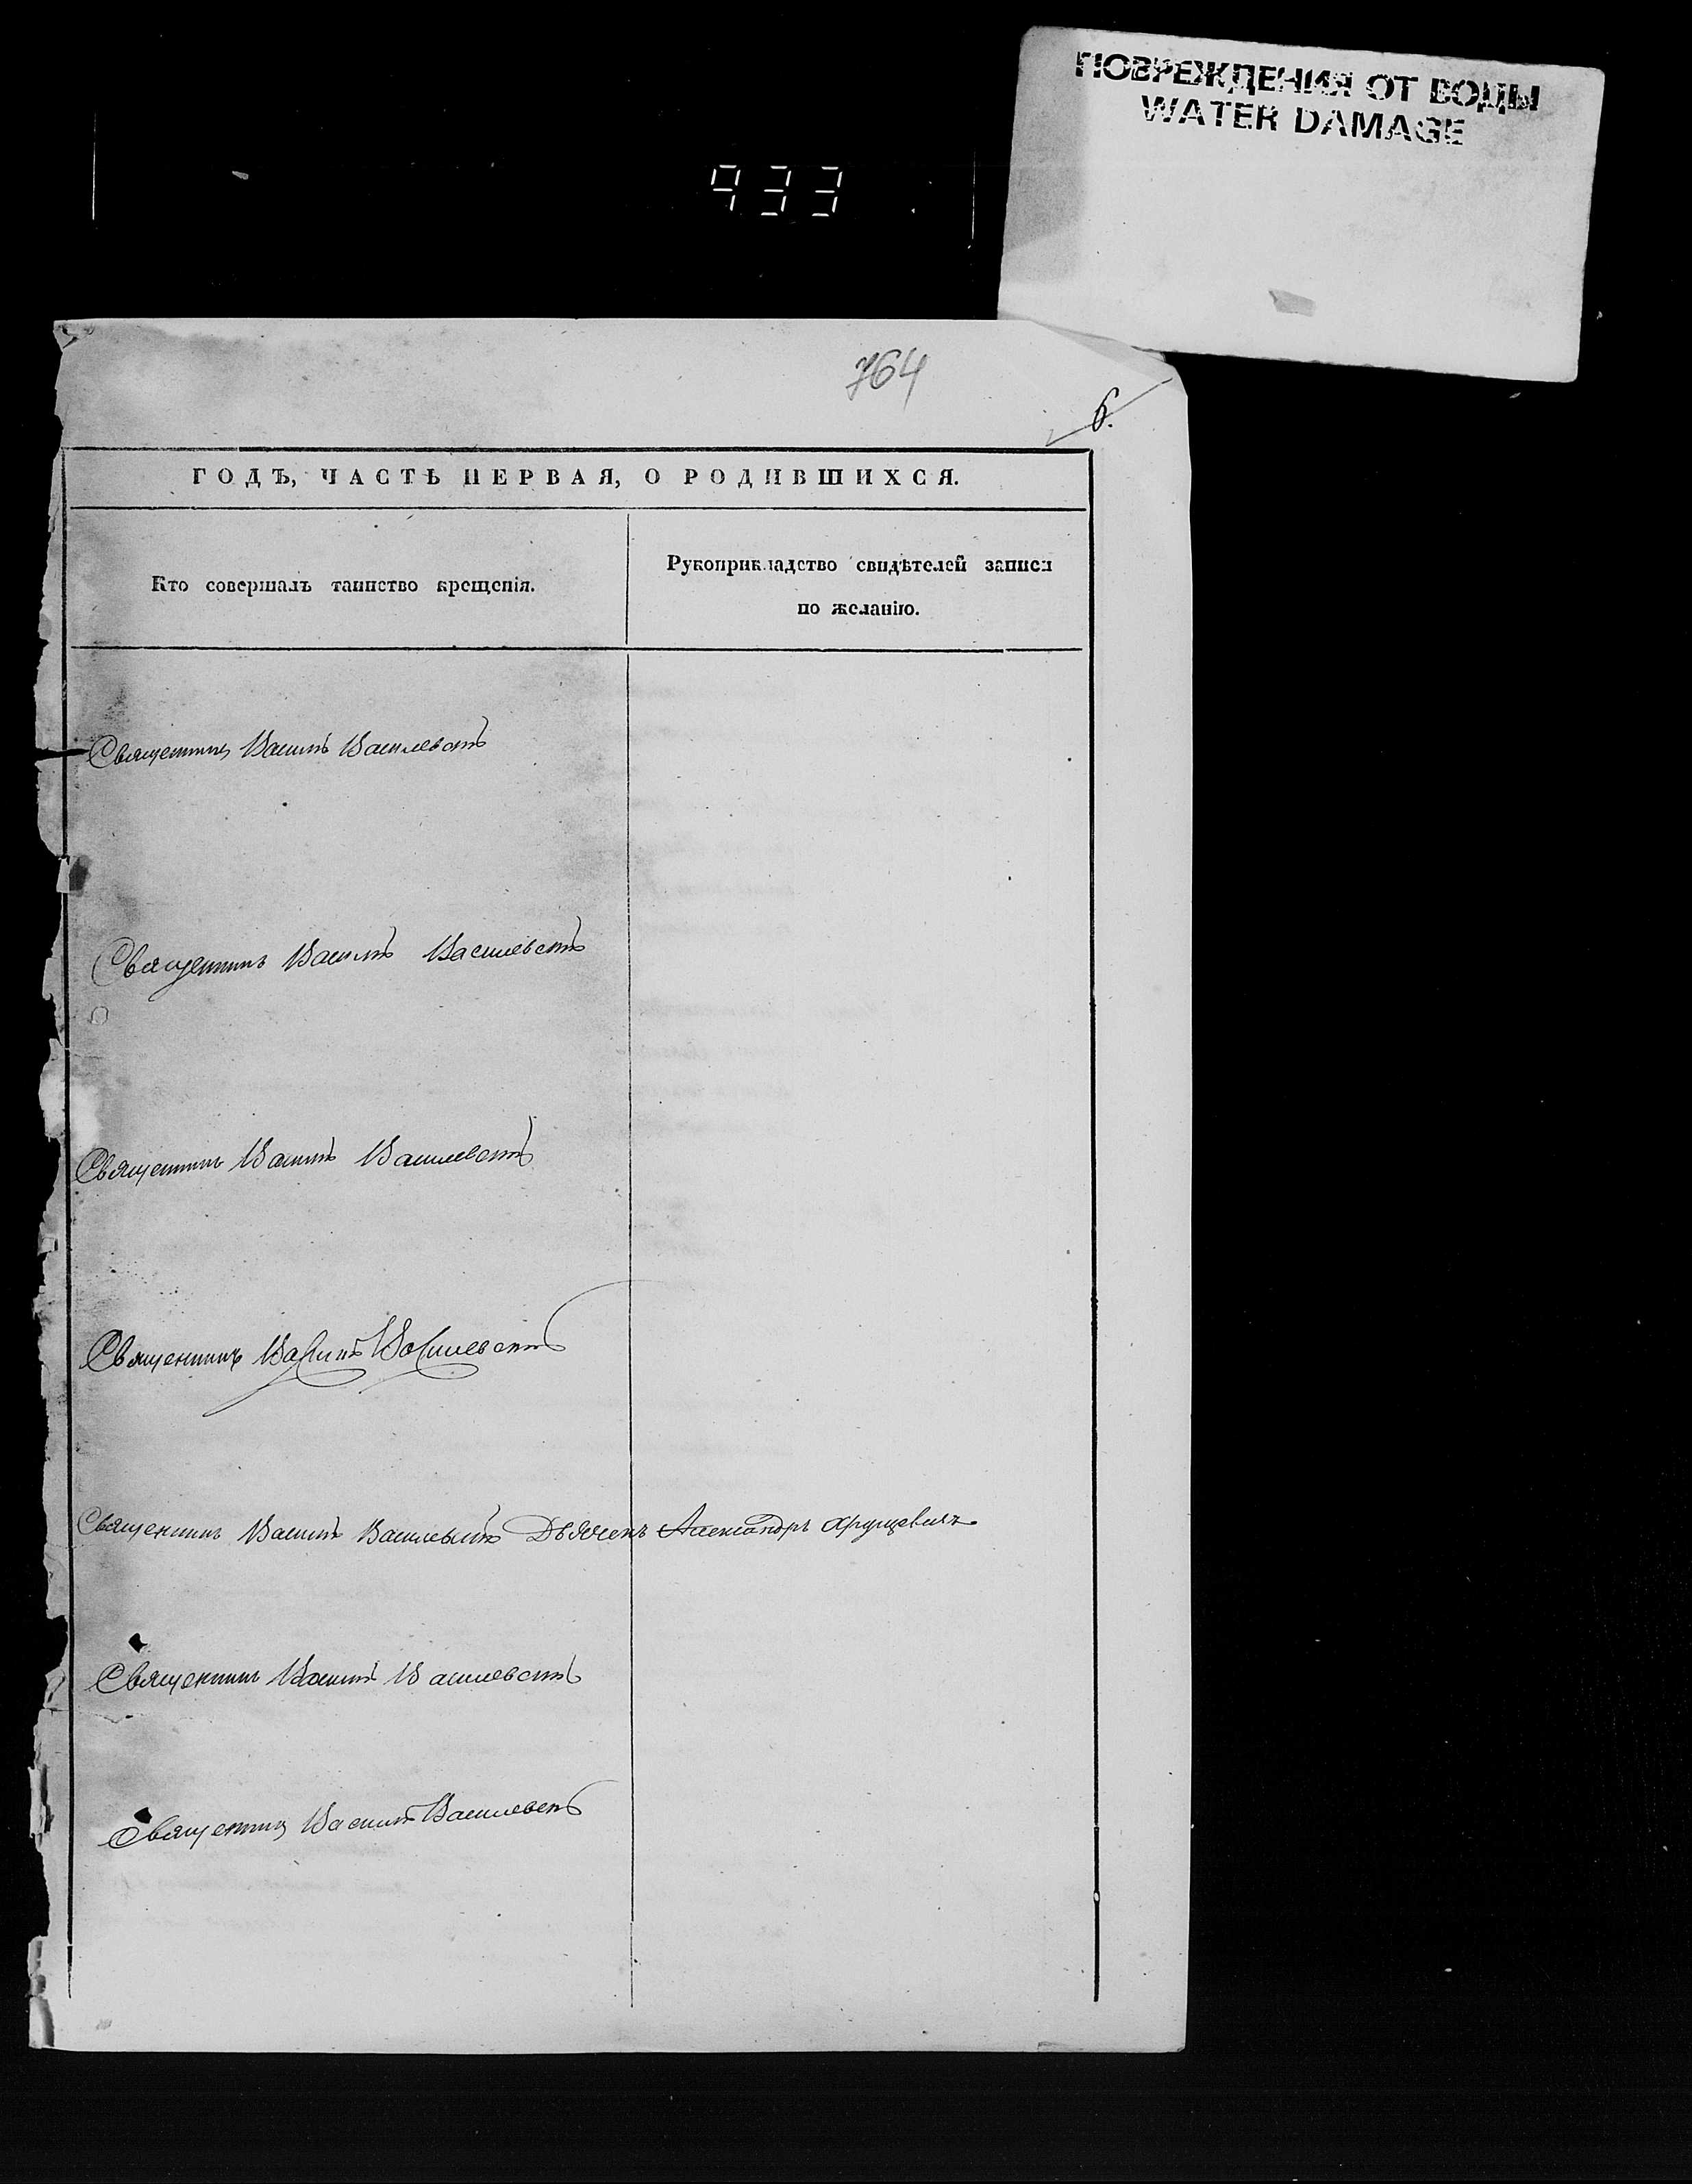 ПОВРЕЖДЕНИЯ ОТ ВОДЫ
WATER DAMAGE
933
764
6.
ГОДЪ, ЧАСТЬ ПЕРВАЯ, О РОДИВШИХСЯ.
Кто совершалъ таинство крещенія.
Рукоприкладство свидѣтелей записи
по желанію.
Священникъ Василій Василевскій
Священникъ Василій Василевскій
Священникъ Василій Василевскій
Священникъ Василій Василевскій
Священникъ Василій Василевскій Дьячекъ Александръ Хрущевичъ
Священникъ Василій Василевскій
Священникъ Василій Василевскій